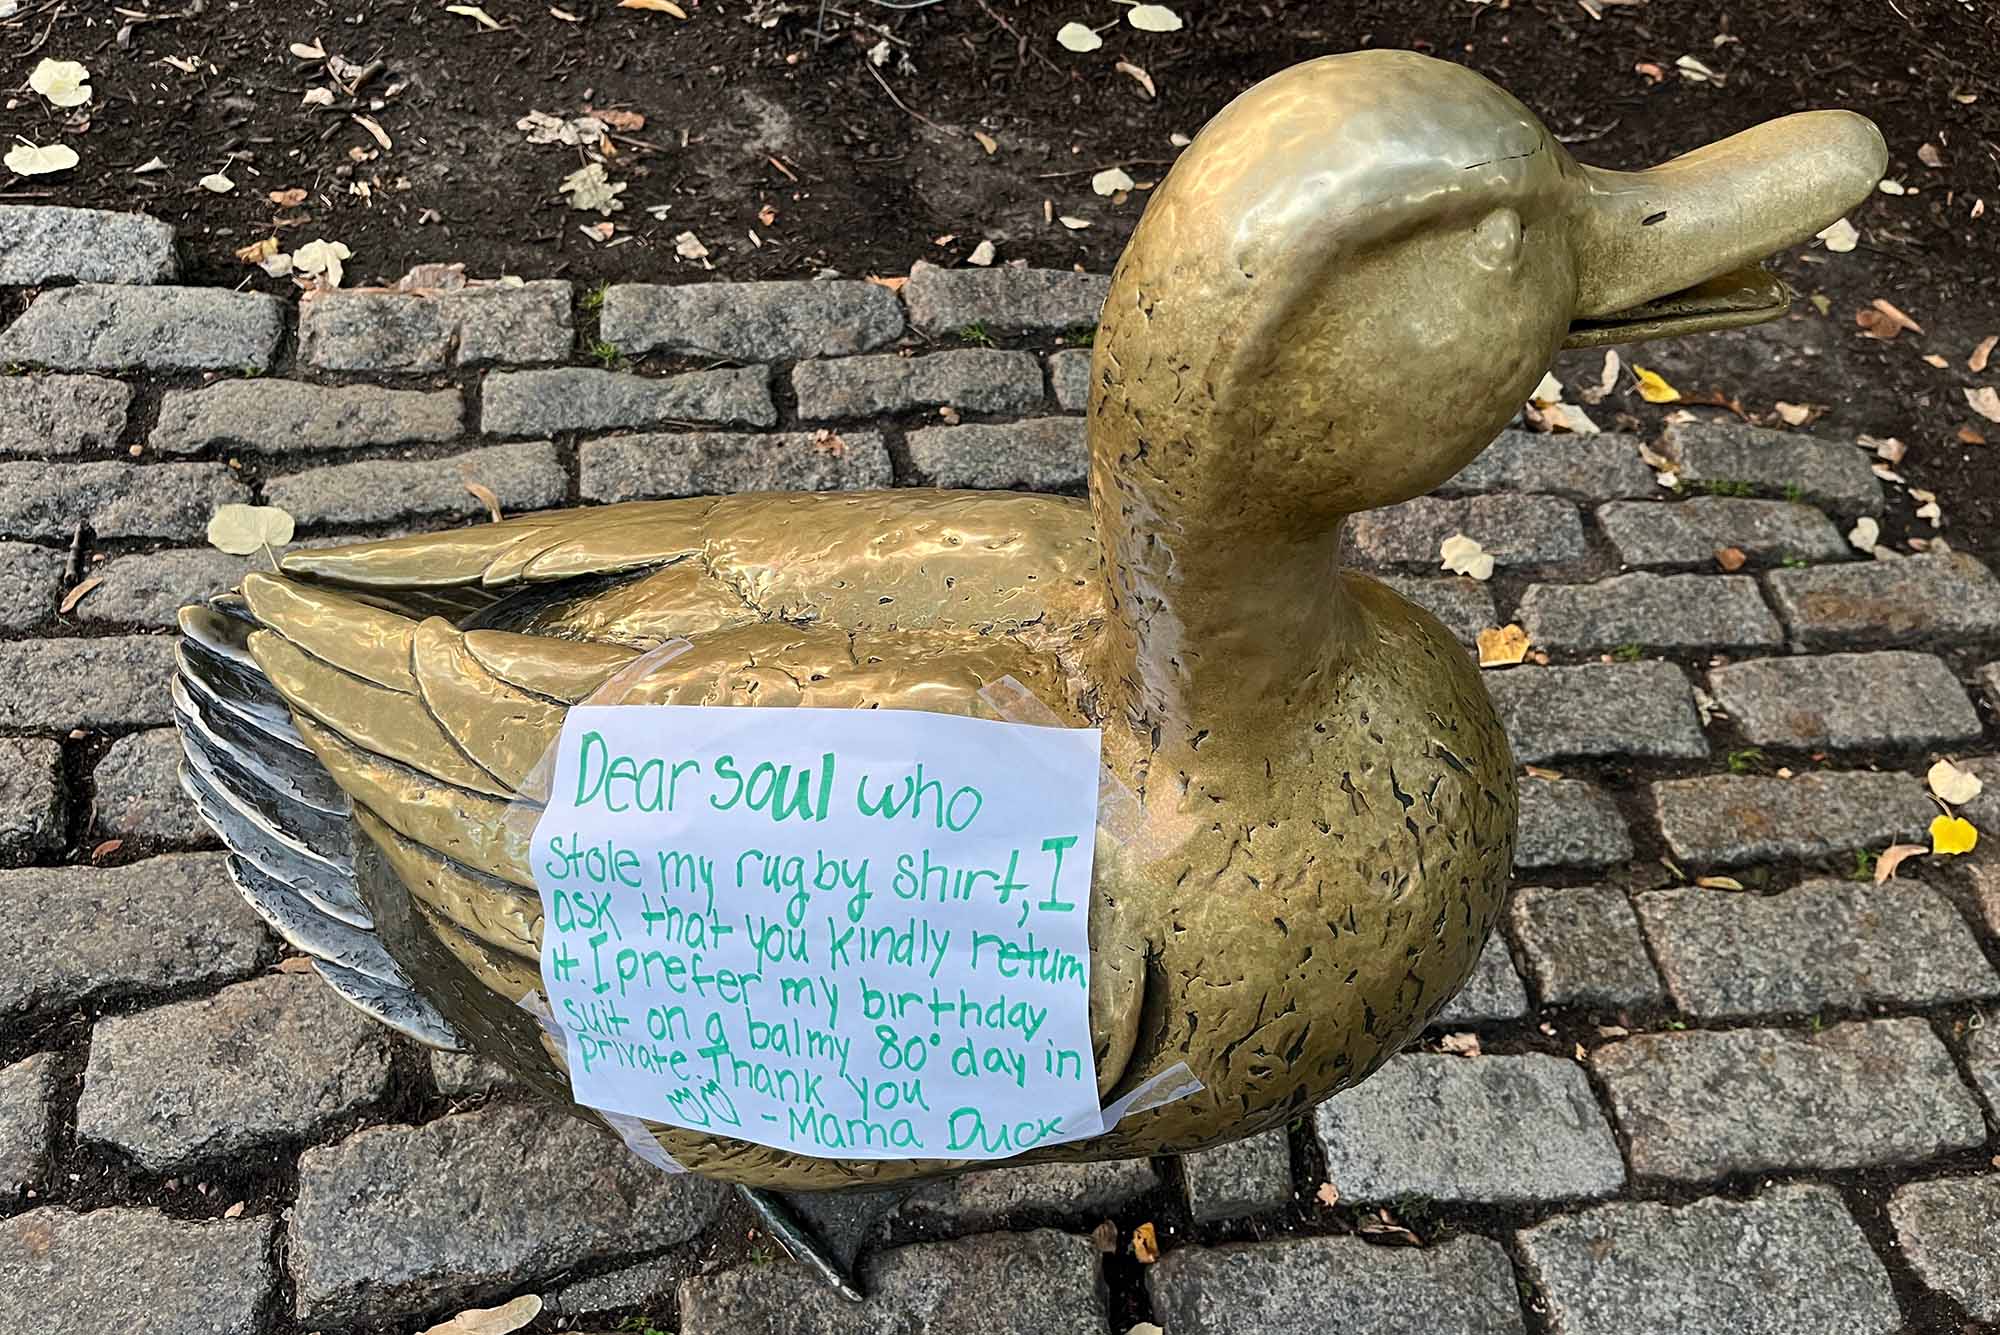 Dear soul who
stole my rugby shirt, I
ask that you kindly return
it. I prefer my birthday
suit on a balmy 80° day in
private. Thank you
-Mama Duck